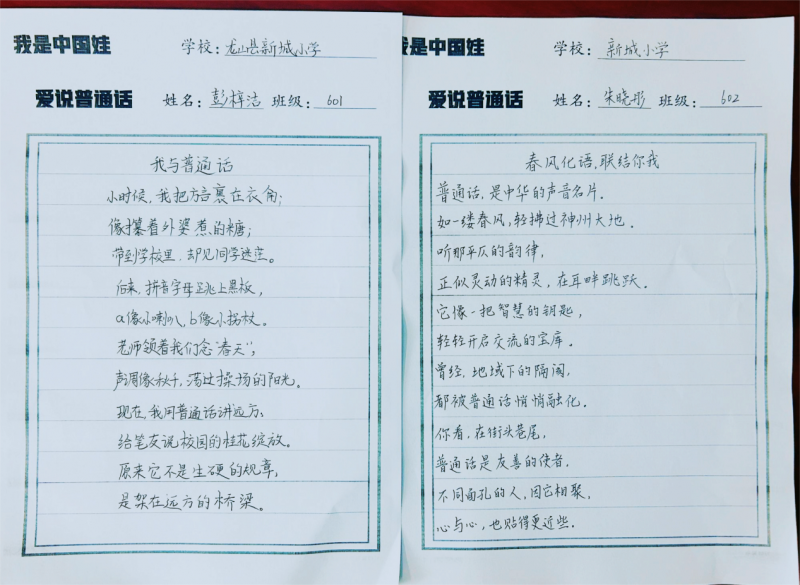 我是中国娃 学校：龙山县新城小学
爱说普通话 姓名：彭梓洁 班级：601
我与普通话
小时候，我把方言裹在衣角；
像攥着外婆煮的糖；
带到学校里，却见同学迷茫。
后来，拼音字母跳上黑板，
a像小喇叭，b像小拐杖。
老师领着我们念“春天”；
声调像秋千，荡过操场的阳光。
现在，我用普通话讲远方，
给笔友说校园的桂花绽放。
原来它不是生硬的规章，
是架在远方的桥梁。
我是中国娃 学校：新城小学
爱说普通话 姓名：朱晓彤 班级：602
春风化语，联结你我
普通话，是中华的声音名片．
如一缕春风，轻拂过神州大地．
听那平仄的韵律，
正似灵动的精灵，在耳畔跳跃．
它像一把智慧的钥匙，
轻轻开启交流的宝库．
曾经，地域下的隔阂，
都被普通话悄悄融化．
你看，在街头巷尾，
普通话是友善的使者．
不同面孔的人，因它相聚，
心与心，也贴得更近些．